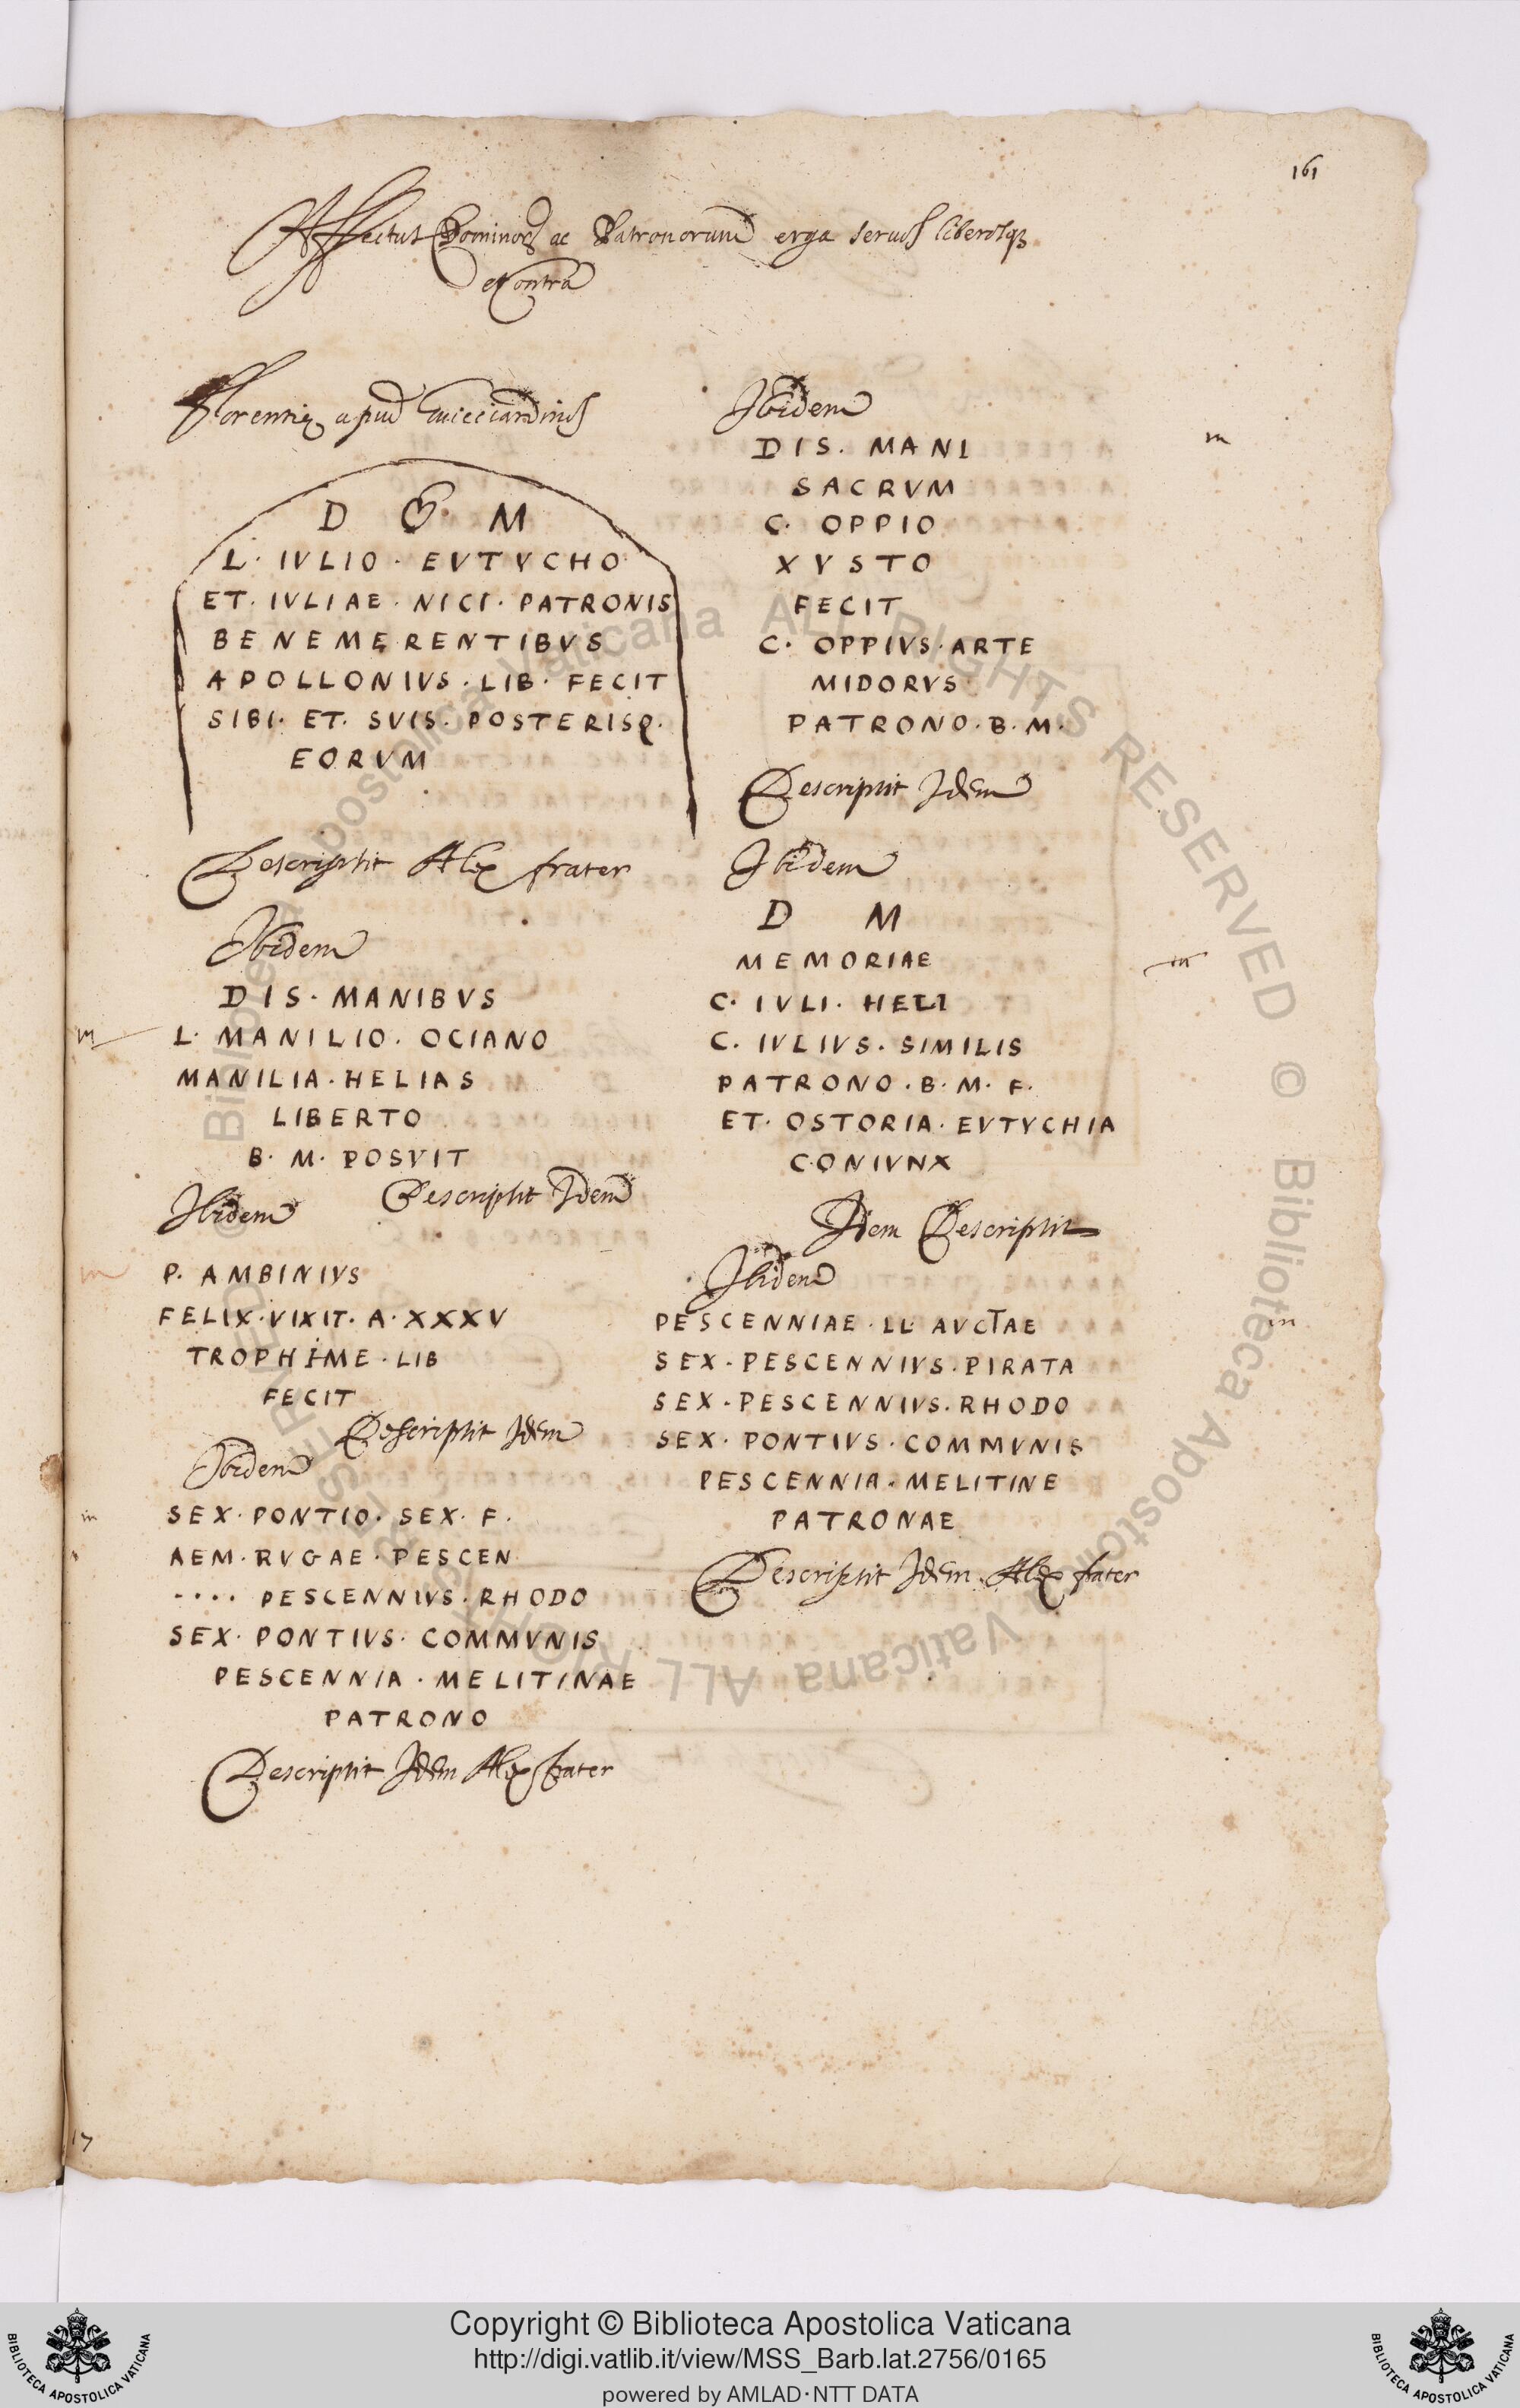 161
Affectus Dominorꝝ ac Patronorum erga seruos liberosqꝫ
et Contra
Florentię apud Guicciardinos
D M
L· IVLIO · EVTVCHO
ET · IVLIAE · NICI · PATRONIS
BENEMERENTIBVS
APOLLONIVS · LIB · FECIT
SIBI · ET · SVIS · POSTERISQ.
EORVM
Descripsit Alex frater
Ibidem
DIS · MANIBVS
m
L · MANILIO · OCIANO
MANILIA · HELIAS
LIBERTO
B · M · POSVIT
Descripsit Idem
Ibidem
m
P. AMBINIVS
FELIX · VIXIT · A · XXXV
TROPHIME · LIB
FECIT
Descripsit Idem
Ibidem
m
SEX · PONTIO · SEX · F.
AEM · RVGAE · PESCEN
.... PESCENNIVS · RHODO
SEX · PONTIVS · COMMVNIS
PESCENNIA · MELITINAE
PATRONO
Descripsit Idem Alex frater
Ibidem
DIS · MANI
m
SACRVM
C· OPPIO
XVSTO
FECIT
C· OPPIVS · ARTE
MIDORVS
PATRONO · B · M ·
Descripsit Idem
Ibidem
D M
MEMORIAE
m
C· IVLI · HELI
C. IVLIVS · SIMILIS
PATRONO · B · M · F.
ET · OSTORIA · EVTYCHIA
CONIVNX
Idem Descripsit
Ibidem
PESCENNIAE · LL· AVCTAE
m
SEX · PESCENNIVS · PIRATA
SEX · PESCENNIVS · RHODO
SEX · PONTIVS · COMMVNIS
PESCENNIA · MELITINE
PATRONAE
Descripsit Idem Alex frater
17
© Biblioteca Apostolica Vaticana ALL RIGHTS RESERVED © Biblioteca Apostolica Vaticana ALL RIGHTS RESERVED
Copyright © Biblioteca Apostolica Vaticana
http://digi.vatlib.it/view/MSS_Barb.lat.2756/0165
powered by AMLAD·NTT DATA
BIBLIOTECA APOSTOLICA VATICANA
BIBLIOTECA APOSTOLICA VATICANA